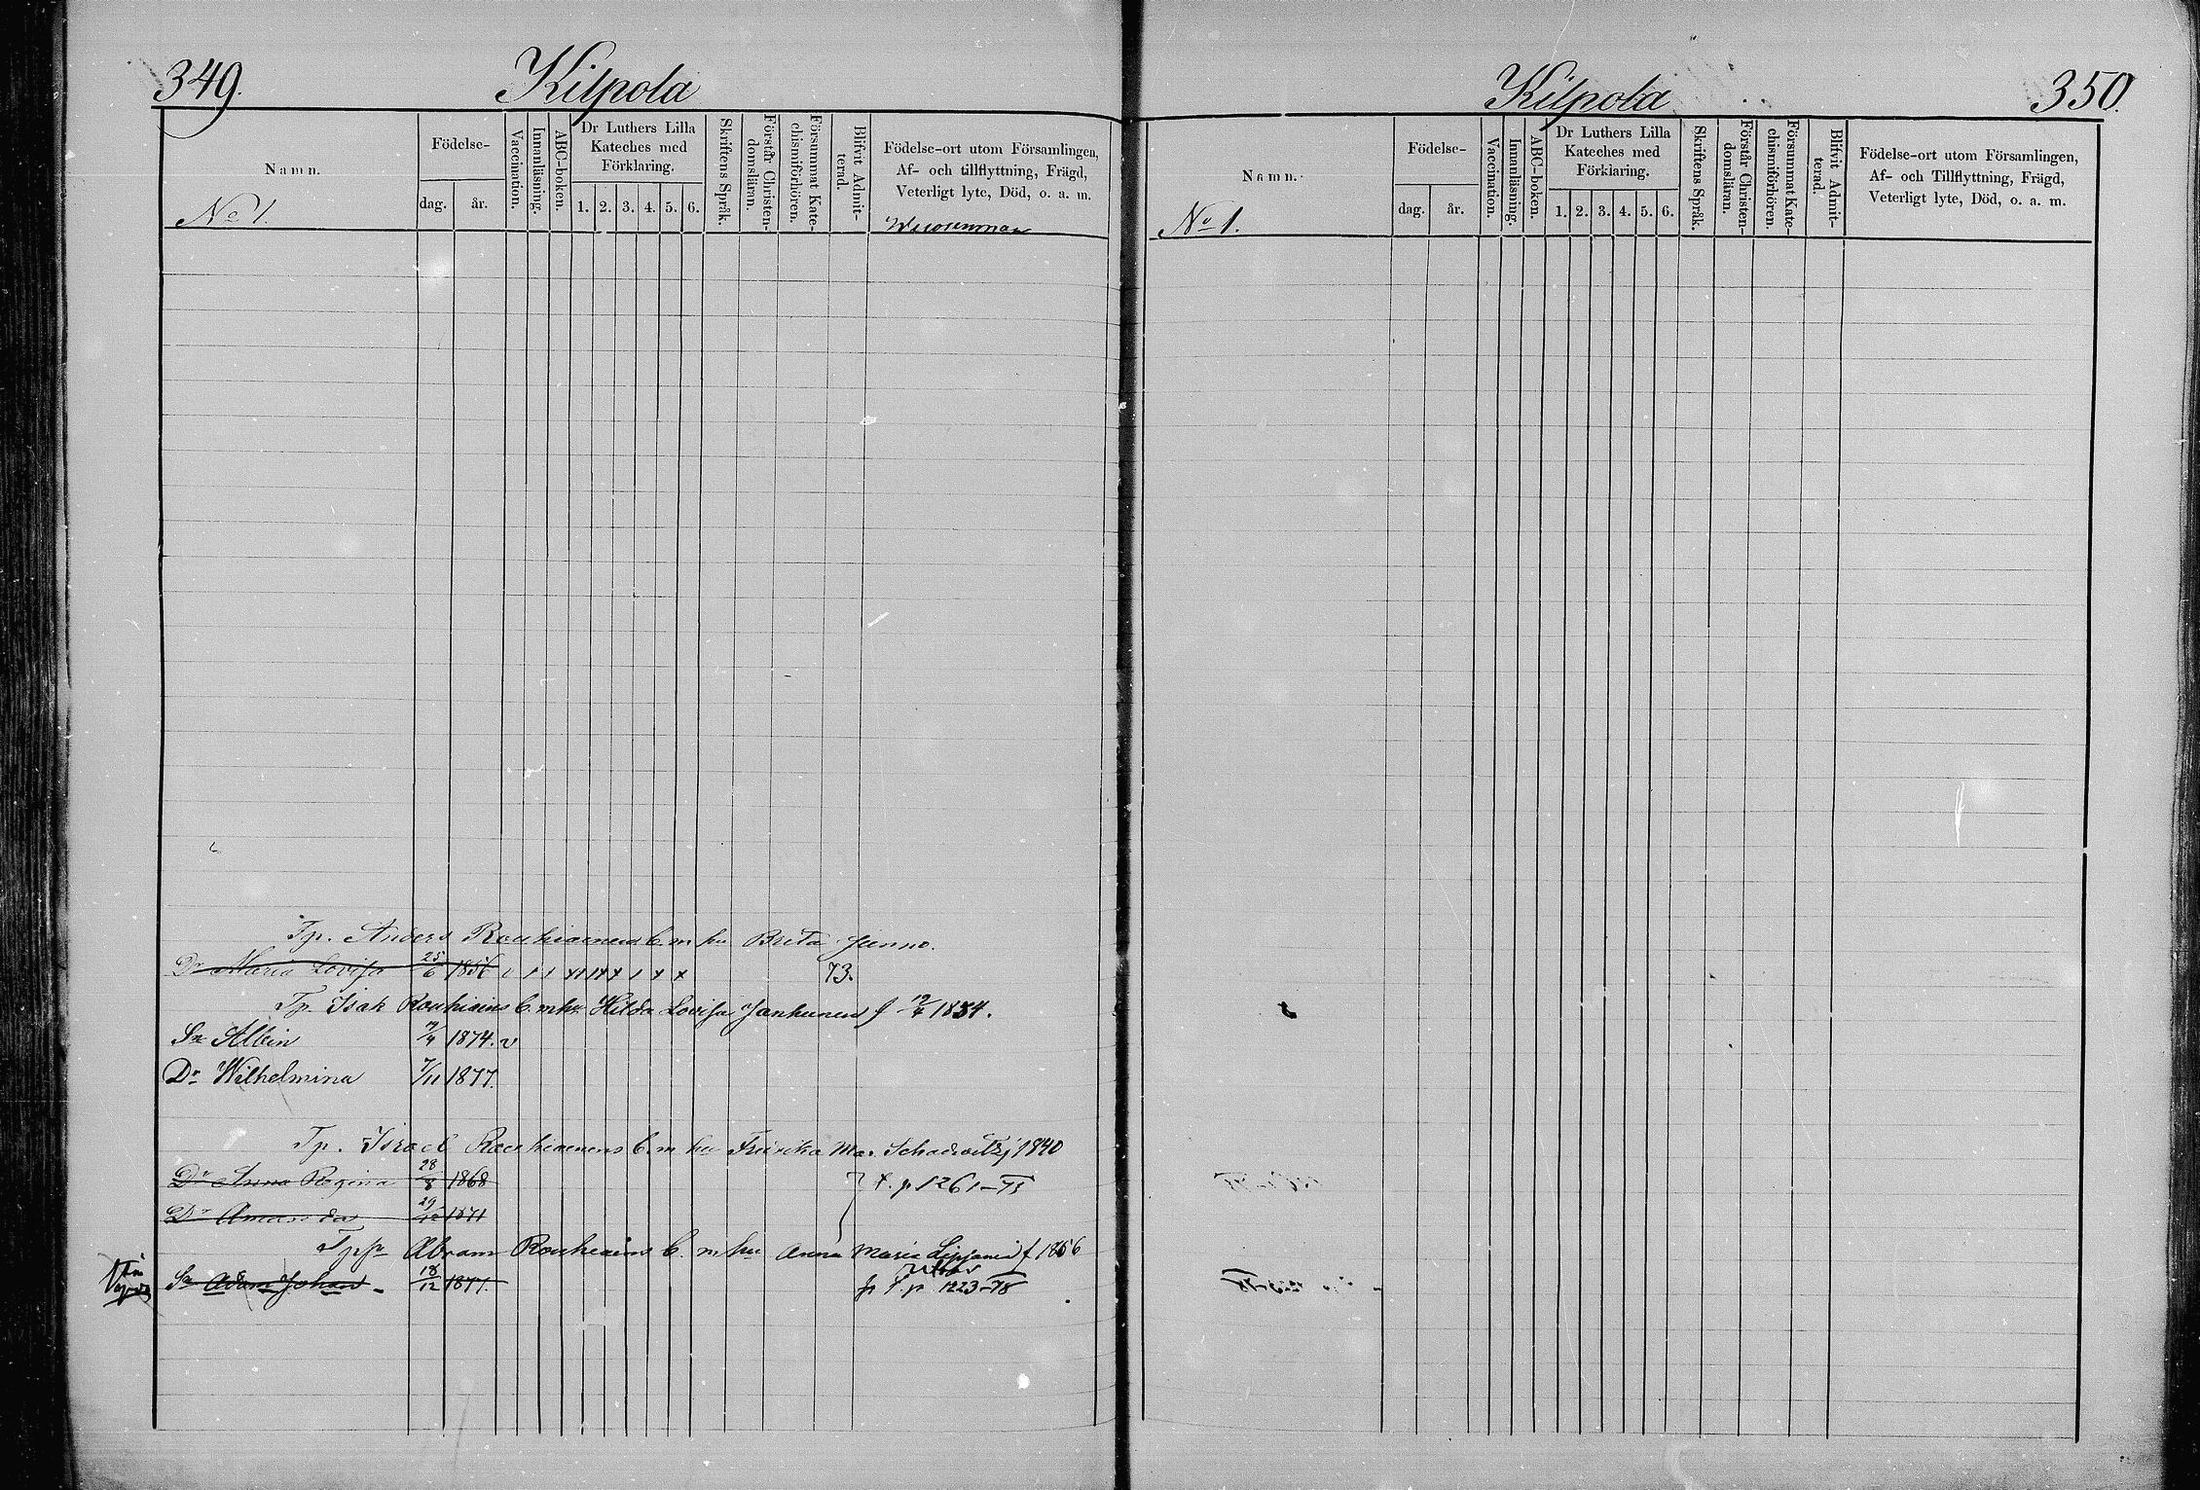 349.
Kilpola
Namn.
Födelse-
dag.
år.
Vaccination.
Innanläsning.
ABC-boken.
Dr Luthers Lilla
Kateches med
Förklaring.
1. 2. 3. 4. 5. 6.
Skriftens Språk.
Förstår Christen-
domsläran.
Försummat Kate-
chismiförhören.
Blifvit Admit-
terad.
Födelse-ort utom Församlingen,
Af- och tillflyttning, Frägd,
Veterligt lyte, Död, o. a. m.
No 1.
Tp. Anders Rouhiainens b. m hu Brita Junno.
Dr Maria Lovisa 25/6 1856 73.
Tp. Isak Rouhiains b. m hu Hilda Lovisa Janhunen f 12/4 1854.
Sn Albin 1874. v
Dr Wilhelmina 7/11 1877.
Tp. Israel Rouhiainens b. m hu Fredrika Mar. 1840
Dr Anna Regina 28/8 1868 t. p 1261-73
Dr Amanda 29/12 1871
Abram Rouhiains b. m hu Anna Maria f 1856
Sn Adam Johan 18/12 1877. p 1223-78
Kilpola
350.
Namn.
Födelse-
dag.
år.
Vaccination.
Innanläsning.
ABC-boken.
Dr Luthers Lilla
Kateches med
Förklaring.
1. 2. 3. 4. 5. 6.
Skriftens Språk.
Förstår Christen-
domsläran.
Försummat Kate-
chismiförhören.
Blifvit Admit-
terad.
Födelse-ort utom Församlingen,
Af- och Tillflyttning, Frägd,
Veterligt lyte, Död, o. a. m.
No 1.